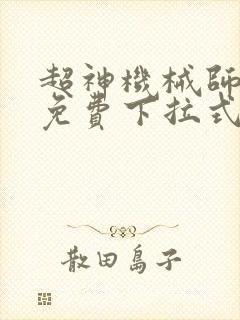 超神機械師
免費下拉式
散田島子